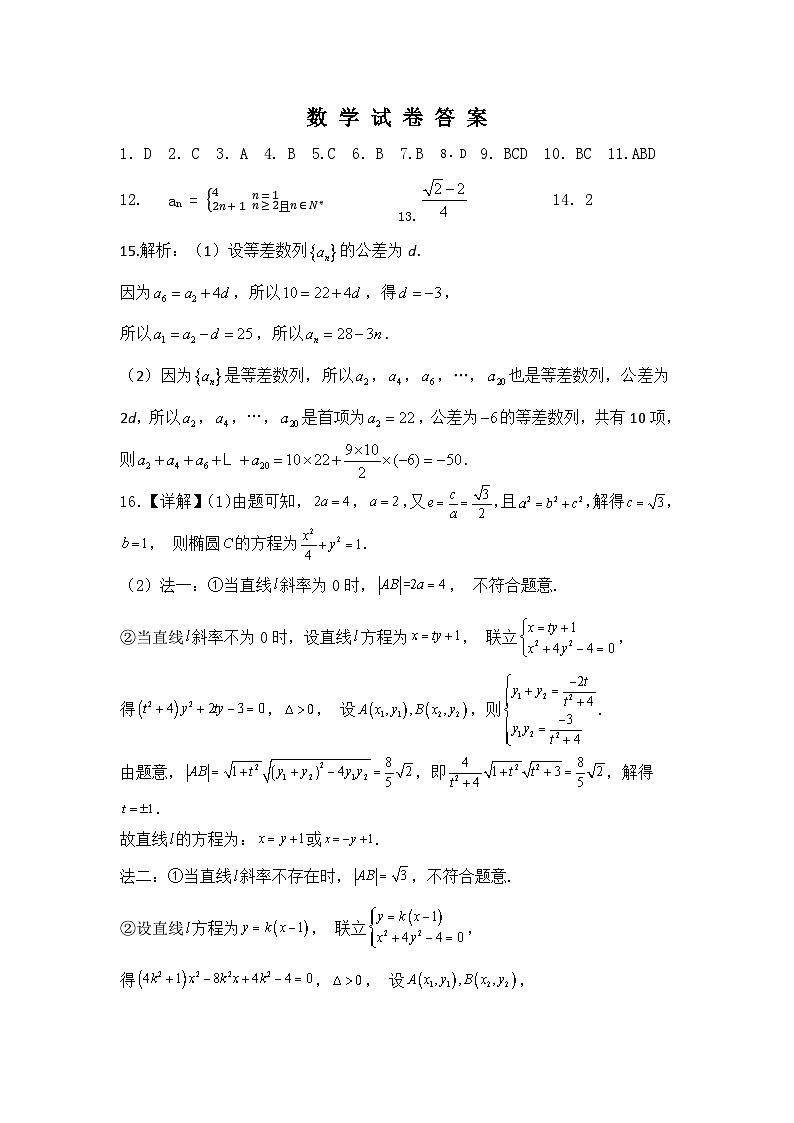 数 学 试 卷 答 案
1. D 2. C 3. A 4. B 5.C 6. B 7.B 8. D 9. BCD 10. BC 11.ABD
12. aₙ = {4 n=1; 2n+1 n≥2且n∈N* 13. (√2−2)/4 14. 2
15.解析：（1）设等差数列{aₙ}的公差为 d.
因为a₆=a₂+4d，所以10=22+4d，得d=−3，
所以a₁=a₂−d=25，所以aₙ=28−3n.
（2）因为{aₙ}是等差数列，所以a₂，a₄，a₆，…，a₂₀也是等差数列，公差为
2d，所以a₂，a₄，…，a₂₀是首项为a₂=22，公差为−6的等差数列，共有 10 项，
则a₂+a₄+a₆+L +a₂₀=10×22+(9×10)/2×(−6)=−50.
16.【详解】（1）由题可知，2a=4，a=2，又e=c/a=√3/2，且a²=b²+c²，解得c=√3，
b=1， 则椭圆C的方程为x²/4+y²=1.
（2）法一：①当直线l斜率为 0 时，|AB|=2a=4， 不符合题意.
②当直线l斜率不为 0 时，设直线l方程为x=ty+1， 联立{x=ty+1; x²+4y²−4=0，
得(t²+4)y²+2ty−3=0，Δ>0， 设A(x₁,y₁),B(x₂,y₂)，则{y₁+y₂=−2t/(t²+4); y₁y₂=−3/(t²+4).
由题意，|AB|=√(1+t²)√((y₁+y₂)²−4y₁y₂)=8/5√2，即4/(t²+4)√(1+t²)√(t²+3)=8/5√2，解得
t=±1.
故直线l的方程为：x=y+1或x=−y+1.
法二：①当直线l斜率不存在时，|AB|=√3，不符合题意.
②设直线l方程为y=k(x−1)， 联立{y=k(x−1); x²+4y²−4=0，
得(4k²+1)x²−8k²x+4k²−4=0，Δ>0， 设A(x₁,y₁),B(x₂,y₂)，